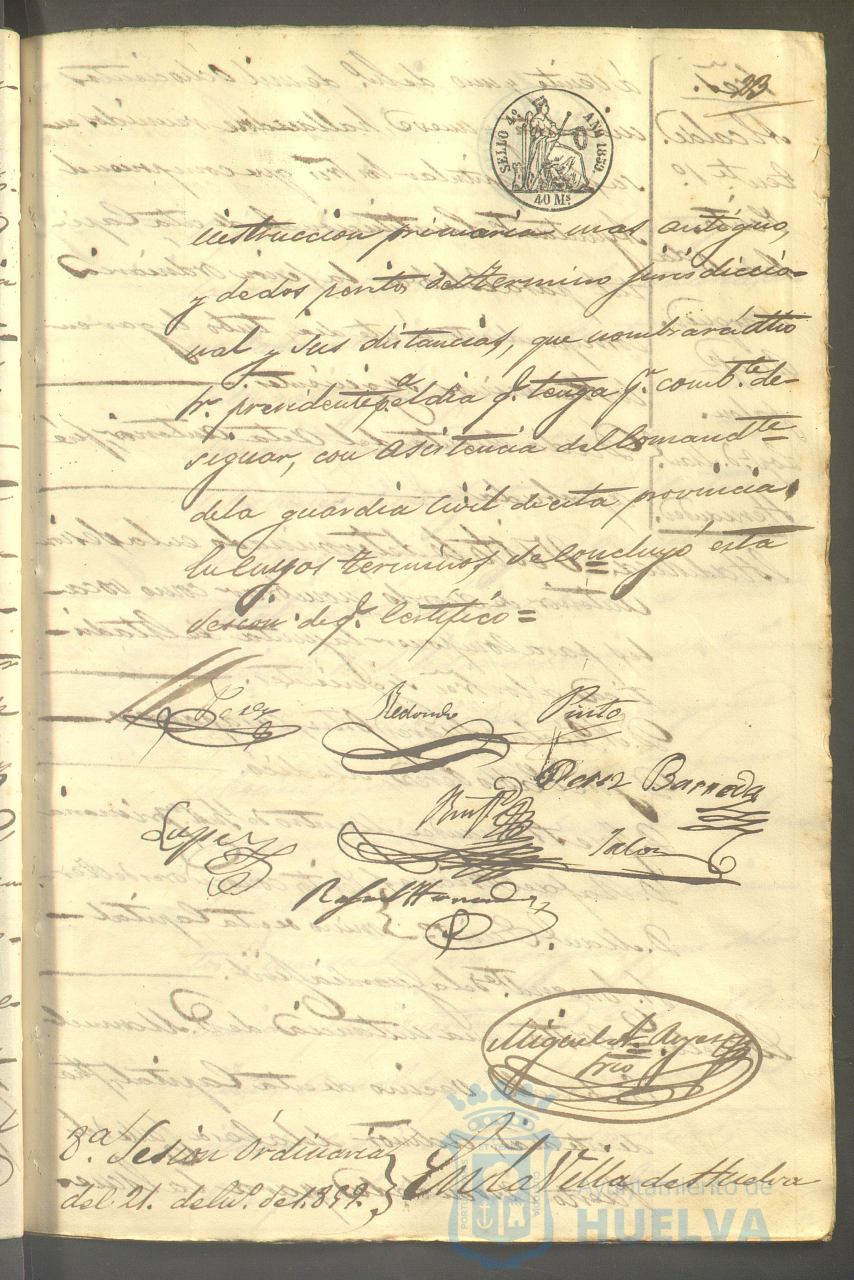 23
SELLO 4º AÑO 1859.
40 Ms
instruccion primaria mas antiguo,
y de dos peritos del termino jurisdiccio-
nal y sus distancias, que nombrará dho
Sr. presidente pª. el dia q. tenga pr. combte. de-
signar, con asistencia del Comandte
de la guardia Civil de esta provincia
En cuyos terminos, se concluyó esta
sesion de q. Certifico=
Redondo Pinto
Perez Barroda
Lopez
Rafael
Miguel
Srio
8ª Sesion Ordinaria
del 21. de del 1859.
En la Villa de Huelva
Ayuntamiento de
HUELVA